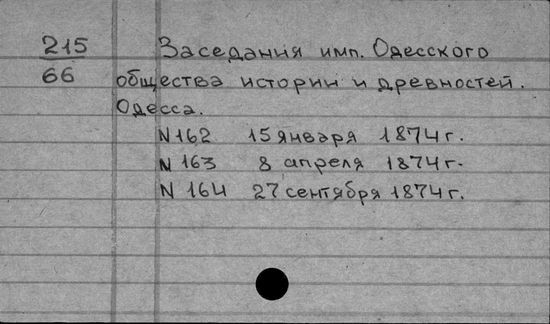 215 Заседания имп. Одесского
66 общества истории и древностей.
Одесса.
N 162 15 января 1874 г.
N 163 8 апреля 1874 г.
N 164 27 сентября 1874 г.